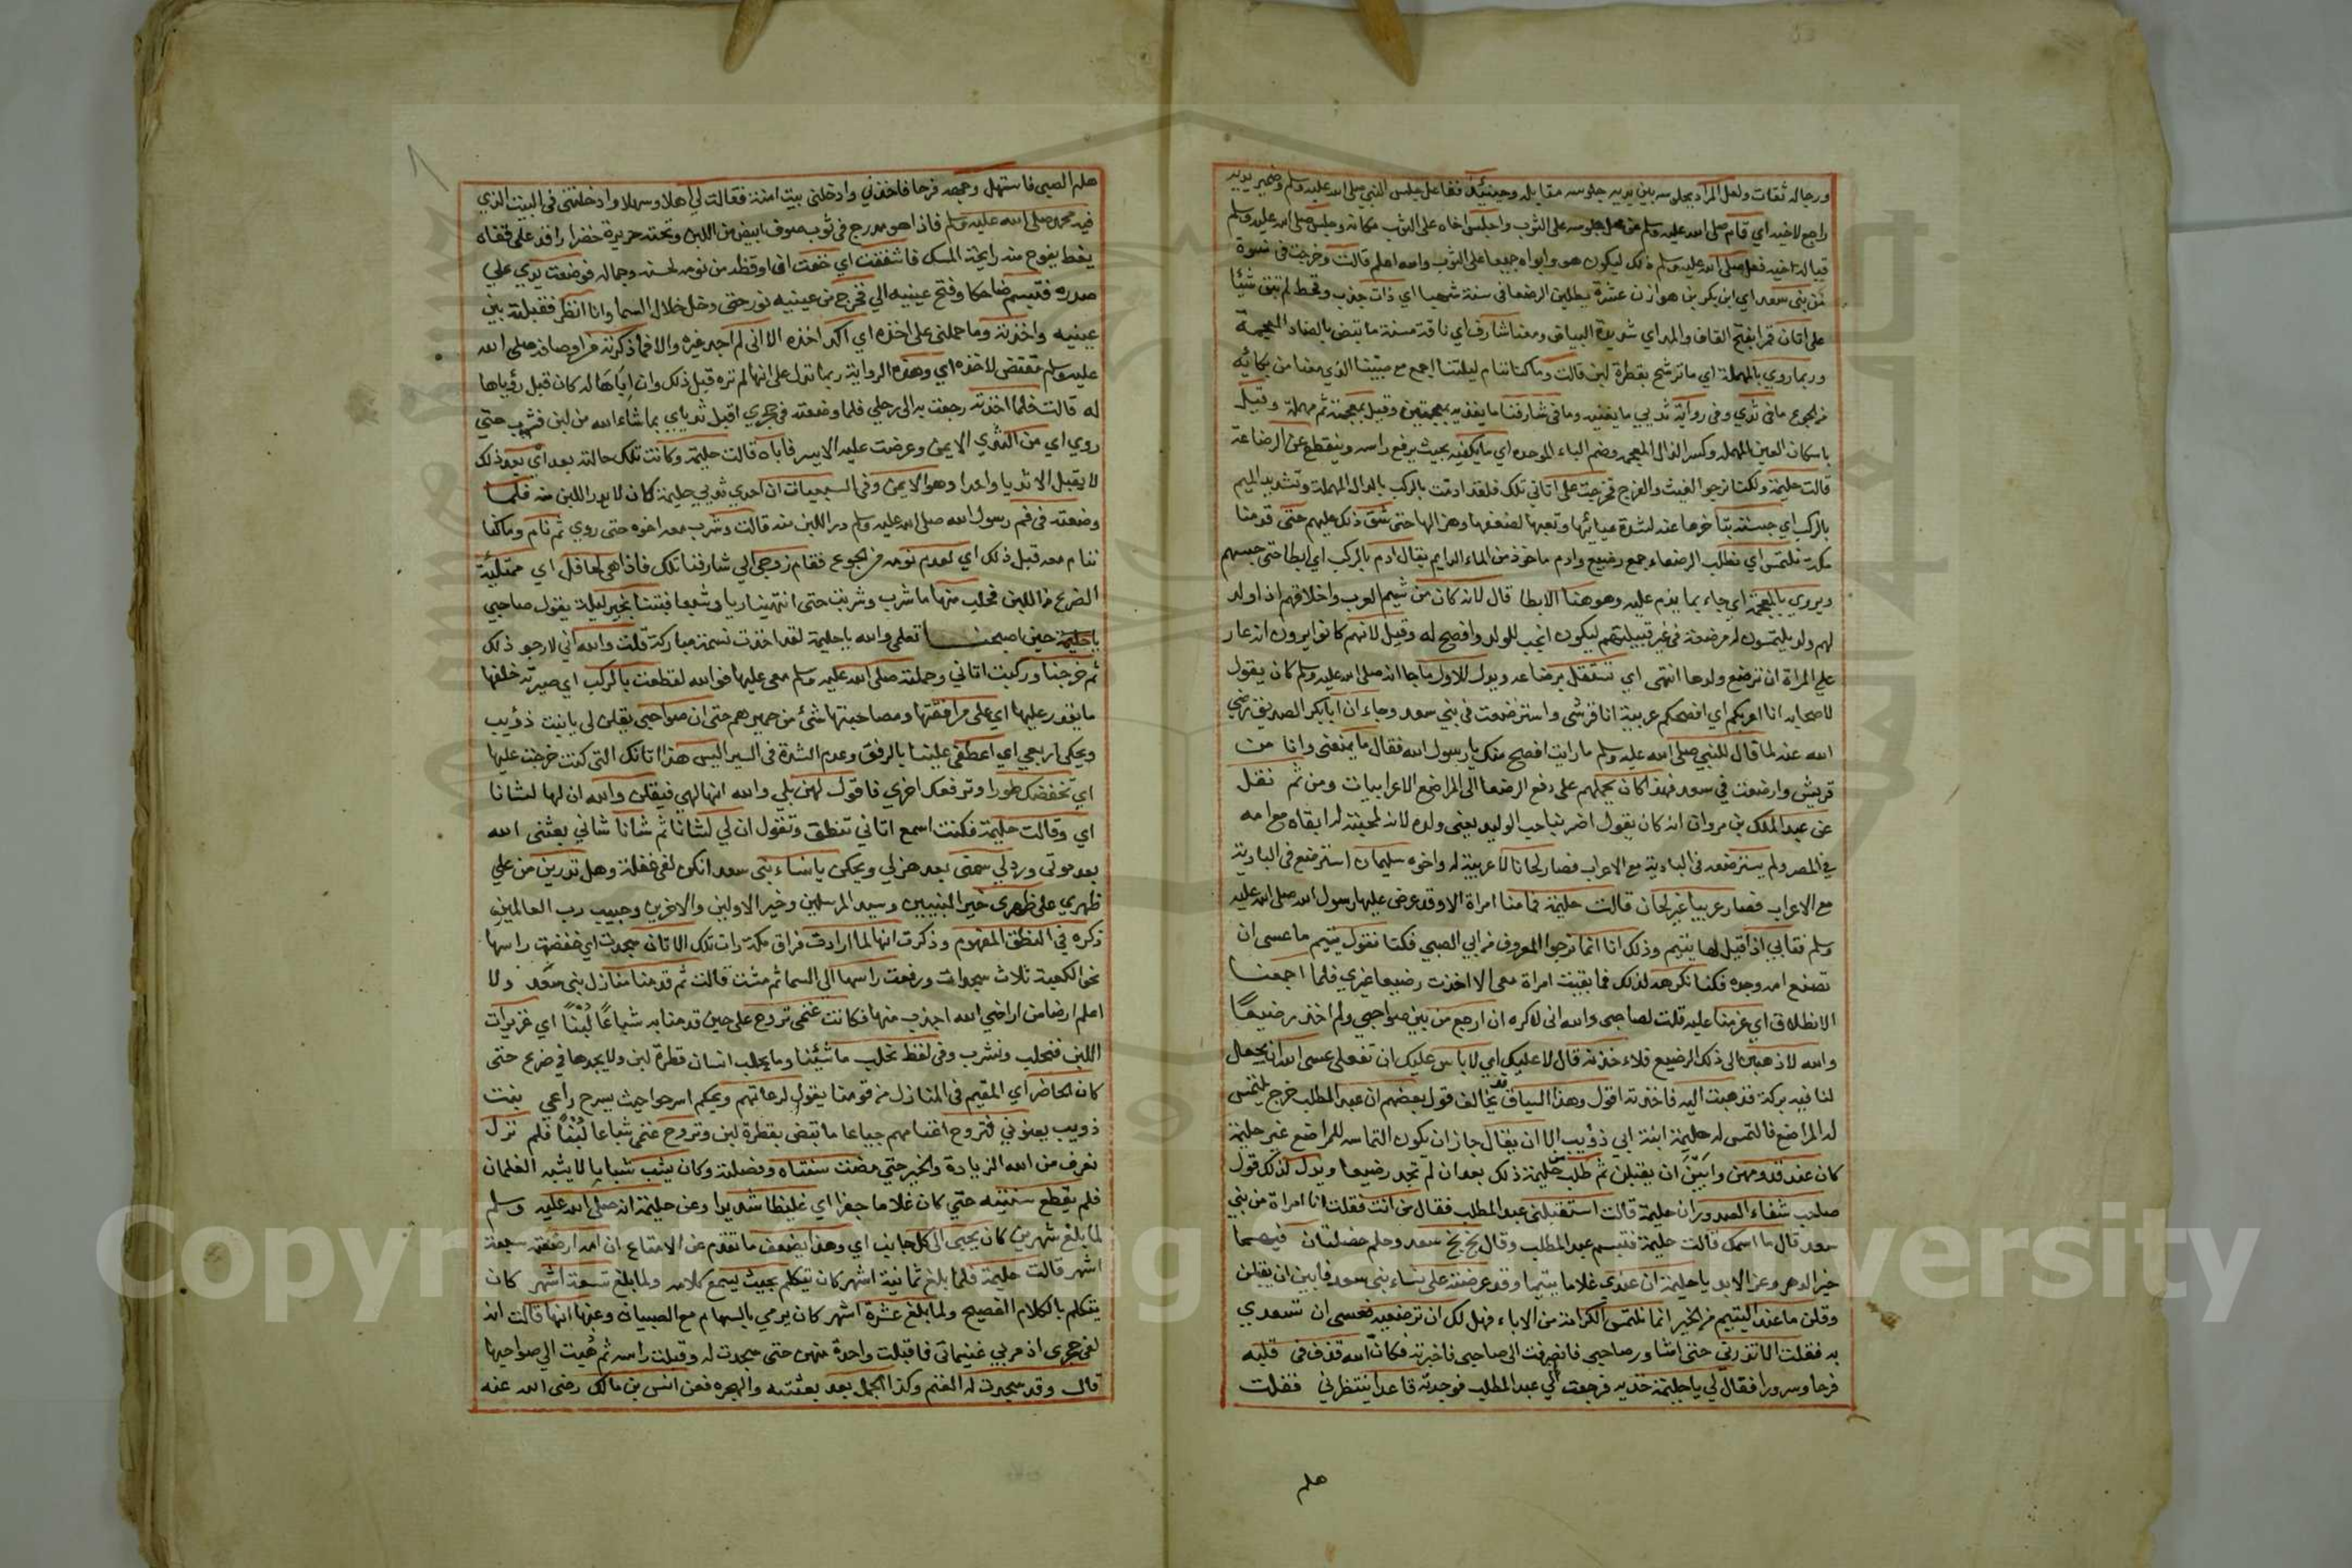 ورجاله ثقات ولعل المراد بجلوسه بين يديه جلوسه مقابله وحينئذ فقاعل جلس النبي صلى الله عليه وسلم وضمير يديه
راجع لاخيه اي قام صلى الله عليه وسلم عن محل جلوسه على الثوب واجلس اخاه على الثوب مكانه وجلس صلى الله عليه وسلم
قبالة اخيه فعل صلى الله عليه وسلم ذلك ليكون هو وابواه جميعا على الثوب والله اعلم قالت وخرجت في نسوة
من بني سعد اي ابن بكر بن هوازن عشرة يطلبن الرضعا في سنة شهبا اي ذات جدب وقحط لم تبق شيئا
على اتان قمرا بفتح القاف والمد اي شديدة البياض ومعنا شارف اي ناقة مسنة ما تبض بالضاد المعجمة
وربما روي بالمهملة اي ما ترشح بقطرة لبن قالت وما كنا ننام ليلتنا اجمع مع صبينا الذي معنا من بكائه
من الجوع ما في ثديي وفي رواية ثديي ما يغنيه وما في شارفنا ما يغذيه بمعجمتين وقيل بمعجمة ثم مهملة وقيل
باسكان العين المهمله وكسر الذال المعجمه وضم الباء الموحده اي ما يكفيه بحيث يرفع راسه وينقطع عن الرضاعة
قالت حليمة ولكنا نرجوا الغيث والفرج فخرجت على اتاني تلك فلقد ادمت بالركب بالدال المهملة وتشديد الميم
بالركب اي حبسته بتاخرها عنه لشدة عيائها وتعبها لضعفها وهزالها حتى شق ذلك عليهم حتى قدمنا
مكة نلتمس اي نطلب الرضعاء جمع رضيع وادم ماخوذ من الماء الدايم يقال ادم بالركب اي ابطا حتى حبسهم
ويروي بالمعجمة اي جاء بما يذم عليه وهو هنا الابطا قال لانه كان من شيم العرب واخلاقهم اذا ولد
لهم ولد يلتمسون له مرضعة في غير قبيلتهم ليكون انجب للولد وافصح له وقيل لانهم كانوا يرون انه عار
على المراة ان ترضع ولدها انتهى اي تستقل برضاعه ويدل للاول ما جا انه صلى الله عليه وسلم كان يقول
لاصحابه انا اعربكم اي افصحكم عربية انا قرشي واسترضعت في بني سعد وجاء ان ابا بكر الصديق رضي
الله عنه لما قال للنبي صلى الله عليه وسلم ما رايت افصح منك يا رسول الله فقال ما يمنعني وانا من
قريش وارضعت في سعد فهذا كان يحملهم على دفع الرضعا الى المراضع الاعرابيات ومن ثم نقل
عن عبد الملك بن مروان انه كان يقول اضر بنا حب الوليد يعني ولده لانه لمحبته له ابقاه مع امه
في المصر ولم يسترضعه في البادية مع الاعراب فصار لحانا لا عربية له واخوه سليمان استرضع في البادية
مع الاعراب فصار عربيا غير لحان قالت حليمة فما منا امراة الا وقد عرض عليها رسول الله صلى الله عليه
وسلم فتابي اذا قيل لها يتيم وذلك انا انما نرجوا المعروف من ابي الصبي فكنا نقول يتيم ما عسى ان
تصنع امه وجده فكنا نكرهه لذلك فما بقيت امراة معي الا اخذت رضيعا غيري فلما اجمعنا
الانطلاق اي عزمنا عليه قلت لصاحبي والله اني لاكره ان ارجع من بين صواحبي ولم اخذ رضيعا
والله لاذهبن الى ذلك الرضيع فلاخذنه قال لا عليك اي لا باس عليك ان تفعلي عسى الله ان يجعل
لنا فيه بركة فذهبت اليه فاخذته اقول وهذا السياق قد يخالف قول بعضهم ان عبد المطلب خرج يلتمس
له المراضع فالتمس له حليمة ابنة ابي ذؤيب الا ان يقال جاز ان يكون التماسه للمراضع غير حليمة
كان عند قدومهن وابين ان يقبلن ثم طلب من حليمة ذلك بعد ان لم تجد رضيعا ويدل لذلك قول
صاحب شفاء الصدور ان حليمة قالت استقبلني عبد المطلب فقال من انت فقلت انا امراة من بني
سعد قال ما اسمك قالت حليمة فتبسم عبد المطلب وقال بخ بخ سعد وحلم خصلتان فيهما
خير الدهر وعز الابد يا حليمة ان عندي غلاما يتيما وقد عرضته على نساء بني سعد فابين ان يقبلن
وقلن ما عند اليتيم من الخير انما نلتمس الكرامة من الاباء فهل لك ان ترضعيه فعسى ان تسعدي
به فقلت الا تذرني حتى اشاور صاحبي فانصرفت الى صاحبي فاخبرته فكان الله قذف في قلبه
فرحا وسرورا فقال لي يا حليمة خذيه فرجعت الي عبد المطلب فوجدته قاعدا ينتظرني فقلت
هلم
هلم الصبي فاستهل وجهه فرحا فاخذني وادخلني بيت امنة فقالت لي اهلا وسهلا وادخلتني في البيت الذي
فيه محمد صلى الله عليه وسلم فاذا هو مدرج في ثوب صوف ابيض من اللبن وتحته حريرة خضرا راقد على قفاه
يغط يفوح منه رايحة المسك فاشفقت اي خفت ان اوقظه من نومه لحسنه وجماله فوضعت يدي على
صدره فتبسم ضاحكا وفتح عينيه الي فخرج من عينيه نور حتى دخل خلال السما وانا انظر فقبلته بين
عينيه واخذته وما حملني على اخذه اي اكد اخذه الا اني لم اجد غيره والا فما ذكرته من اوصافه صلى الله
عليه وسلم مقتض لاخذه اي وهذه الرواية ربما تدل على انها لم تره قبل ذلك وان اباها له كان قبل رؤياها
له قالت فلما اخذته رجعت به الى رحلي فلما وضعته في حجري اقبل ثدياي بما شاء الله من لبن فشرب حتي
روي اي من الثدي الايمن وعرضت عليه الايسر فاباه قالت حليمة وكانت تلك حالته بعد اي بعد ذلك
لا يقبل الا ثديا واحدا وهو الايمن وفي السبعيات ان احدي ثديي حليمة كان لا يدر اللبن منه فلما
وضعته في فم رسول الله صلى الله عليه وسلم در اللبن منه قالت وشرب معه اخوه حتى روي ثم نام وما كنا
ننام معه قبل ذلك اي لعدم نومه من الجوع فقام زوجي الي شارفنا تلك فاذا هي لحافل اي ممتلئة
الضرع من اللبن فحلب منها ما شرب وشربت حتى انتهينا ريا وشبعا فبتنا بخير ليلة يقول صاحبي
يا حليمة حين اصبحنا تعلمي والله يا حليمة لقد اخذت نسمة مباركة قلت والله اني لارجو ذلك
ثم خرجنا وركبت اتاني وحملته صلى الله عليه وسلم معي عليها فوالله لقطعت بالركب اي صيرته خلفها
ما يقدر عليها اي على مرافقتها ومصاحبتها شئ من حميرهم حتى ان صواحبي يقلن لي يا بنت ذؤيب
ويحكي اربعي اي اعطفي علينا بالرفق وعدم الشدة في السير اليس هذا اتانك التي كنت خرجت عليها
اي تخفضك طورا وترفعك اخري فاقول لهن بلي والله انها لهي فيقلن والله ان لها لشانا
اي وقالت حليمة فكنت اسمع اتاني تنطق وتقول ان لي لشانا ثم شانا شاني بعثني الله
بعد موتي ورد لي سمني بعد هزلي ويحكن يا نساء بني سعد انكن لفي غفلة وهل تدرين من علي
ظهري على ظهري خير النبيين وسيد المرسلين وخير الاولين والاخرين وحبيب رب العالمين
ذكره في النطق المفهوم وذكرت انها لما ارادت فراق مكة رات تلك الاتان سجدت اي خفضت راسها
نحو الكعبة ثلاث سجدات ورفعت راسها الى السما ثم مشت قالت ثم قدمنا منازل بني سعد ولا
اعلم ارضا من اراضي الله اجدب منها فكانت غنمي تروح على حين قدمنا به شباعا لبنا اي غزيرات
اللبن فنحلب ونشرب وفي لفظ نحلب ما شئنا وما يحلب انسان قطرة لبن ولا يجدها في ضرع حتى
كان الحاضر اي المقيم في المنازل من قومنا يقول لرعاتهم ويحكم اسرحوا حيث يسرح راعي بنت
ذويب يعنوني فتروح اغنامهم جياعا ما تبض بقطرة لبن وتروح غنمي شباعا لبنا فلم نزل
نعرف من الله الزيادة والخير حتي مضت سنتاه وفصلته وكان يشب شبابا لا يشبه الغلمان
فلم يقطع سنتيه حتي كان غلاما جفرا اي غليظا شديدا وعن حليمة انه صلى الله عليه وسلم
لما بلغ شهرين كان يجيى الى كل جانب اي وهذا يضعف ما تقدم عن الامتاع ان امه ارضعته سبعة
اشهر قالت حليمة فلما بلغ ثمانية اشهر كان يتكلم بحيث يسمع كلامه ولما بلغ تسعة اشهر كان
يتكلم بالكلام الفصيح ولما بلغ عشرة اشهر كان يرمي بالسهام مع الصبيان وعنها انها قالت انه
لفي حجري اذ مر بي غنيماتي فاقبلت واحدة منهن حتى سجدت له وقبلت راسه ثم ذهبت الي صواحبها
قال وقد سجدت له الغنم وكذا الجمل بعد بعثته والهجره فعن انس بن مالك رضى الله عنه
Copyright © King Saud University